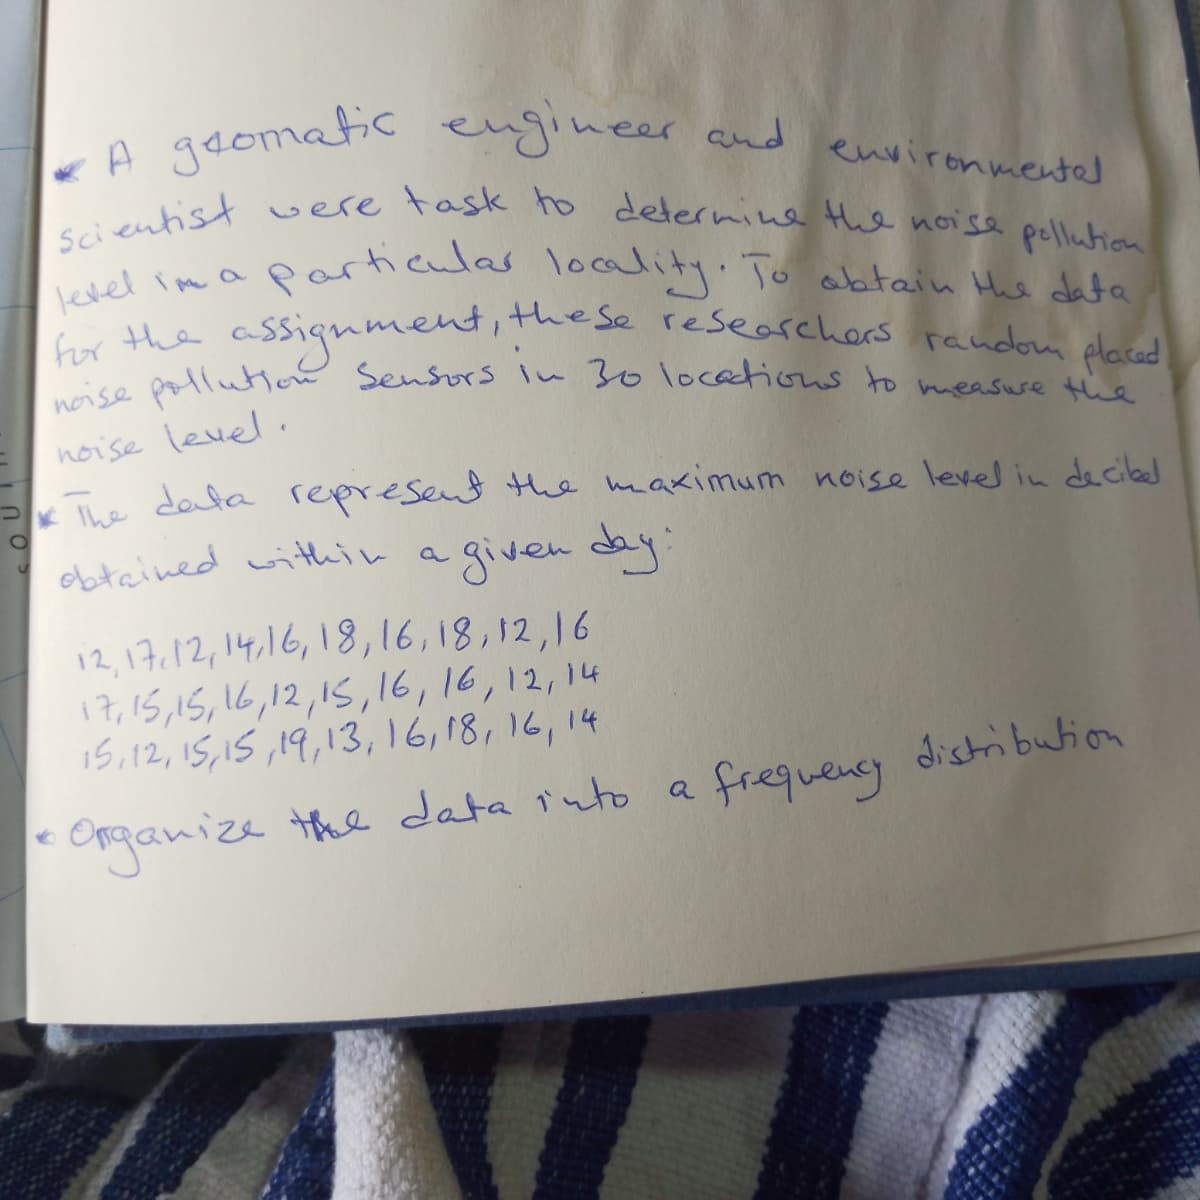 * A geomatic engineer and environmental
scientist were task to determine the noise pollution
level in a particular locality. To obtain the data
for the assignment, these researchers random placed
noise pollution sensors in 30 locations to measure the
noise level.
* The data represent the maximum noise level in decibel
obtained within a given day:
12,17,12,14,16,18,16,18,12,16
17,15,15,16,12,15,16,16,12,14
15,12,15,15,19,13,16,18,16,14
* Organize the data into a frequency distribution